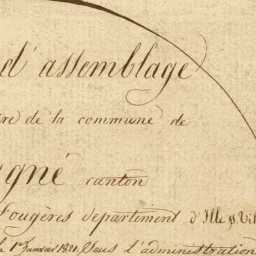 d'assemblage
re de la commune de
gné canton
Fougères département d'Ille & Vil
le 1er Janvier 1821, Sous l'administration